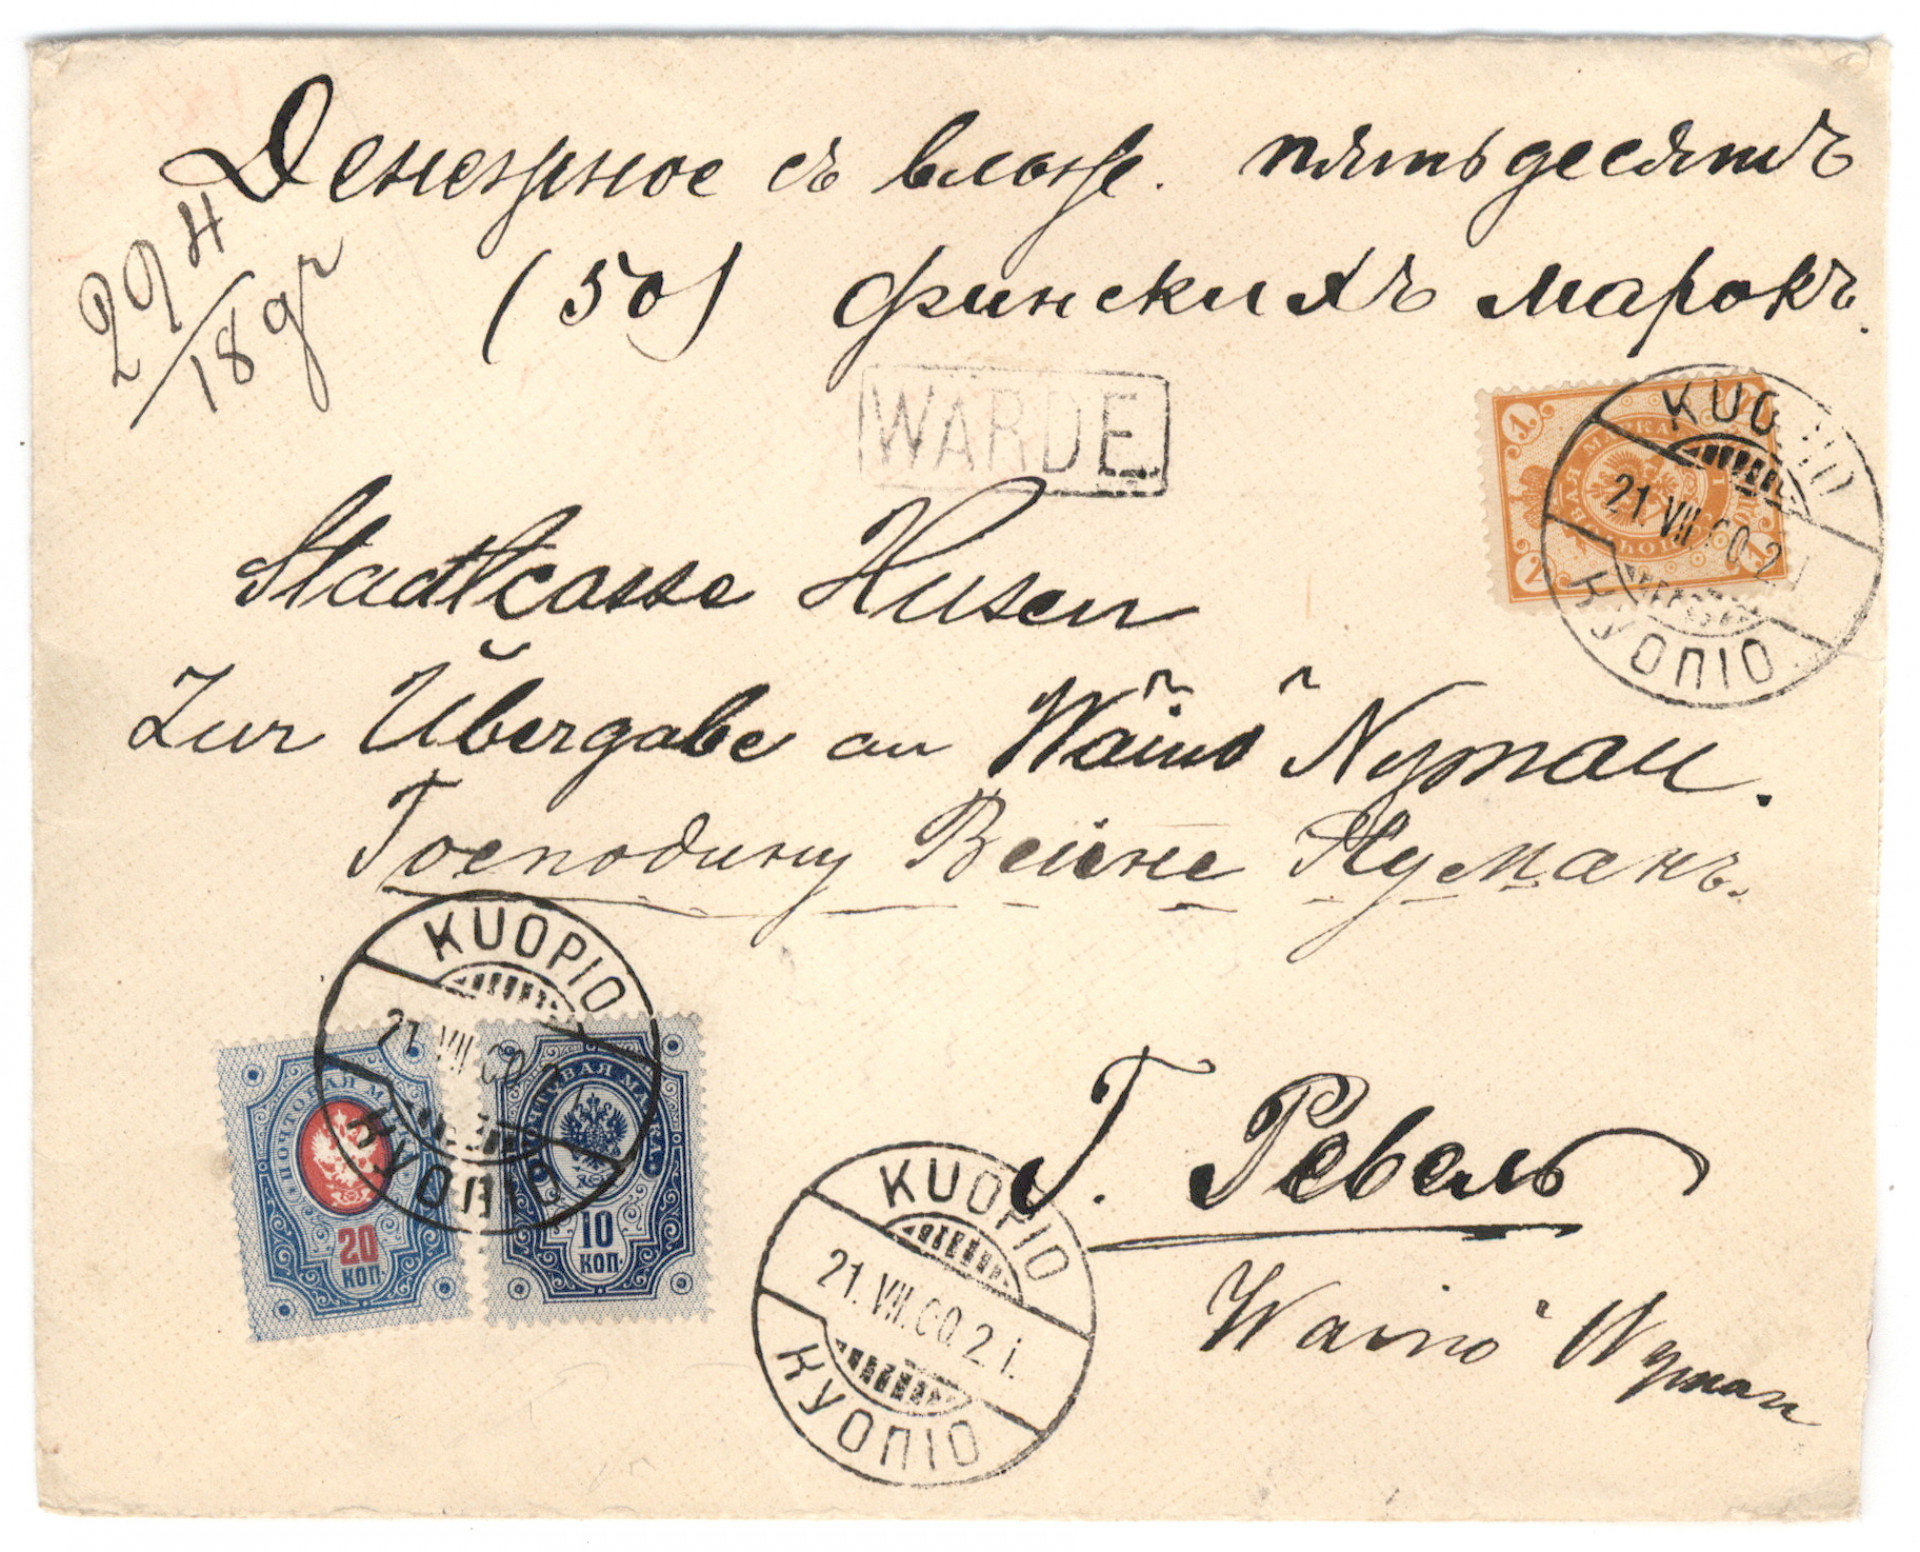 Денежное съ влож. пятьдесятъ
(50) финскихъ марокъ.
29 4/18 9
WARDE
KUOPIO
21.VII.00.2 i.
КУОПІО
1
ПОЧТОВАЯ МАРКА
Stadtcasse Husen
Zur Übergabe an Wäinö Nyman.
Господину Вейне Нуманъ.
KUOPIO
21.VII.00
КУОПІО
ПОЧТОВАЯ МАРКА
20
КОП.
ПОЧТОВАЯ МАРКА
10
КОП.
Г. Ревель
KUOPIO
21.VII.00.2 i.
КУОПІО
Wainö Nyman